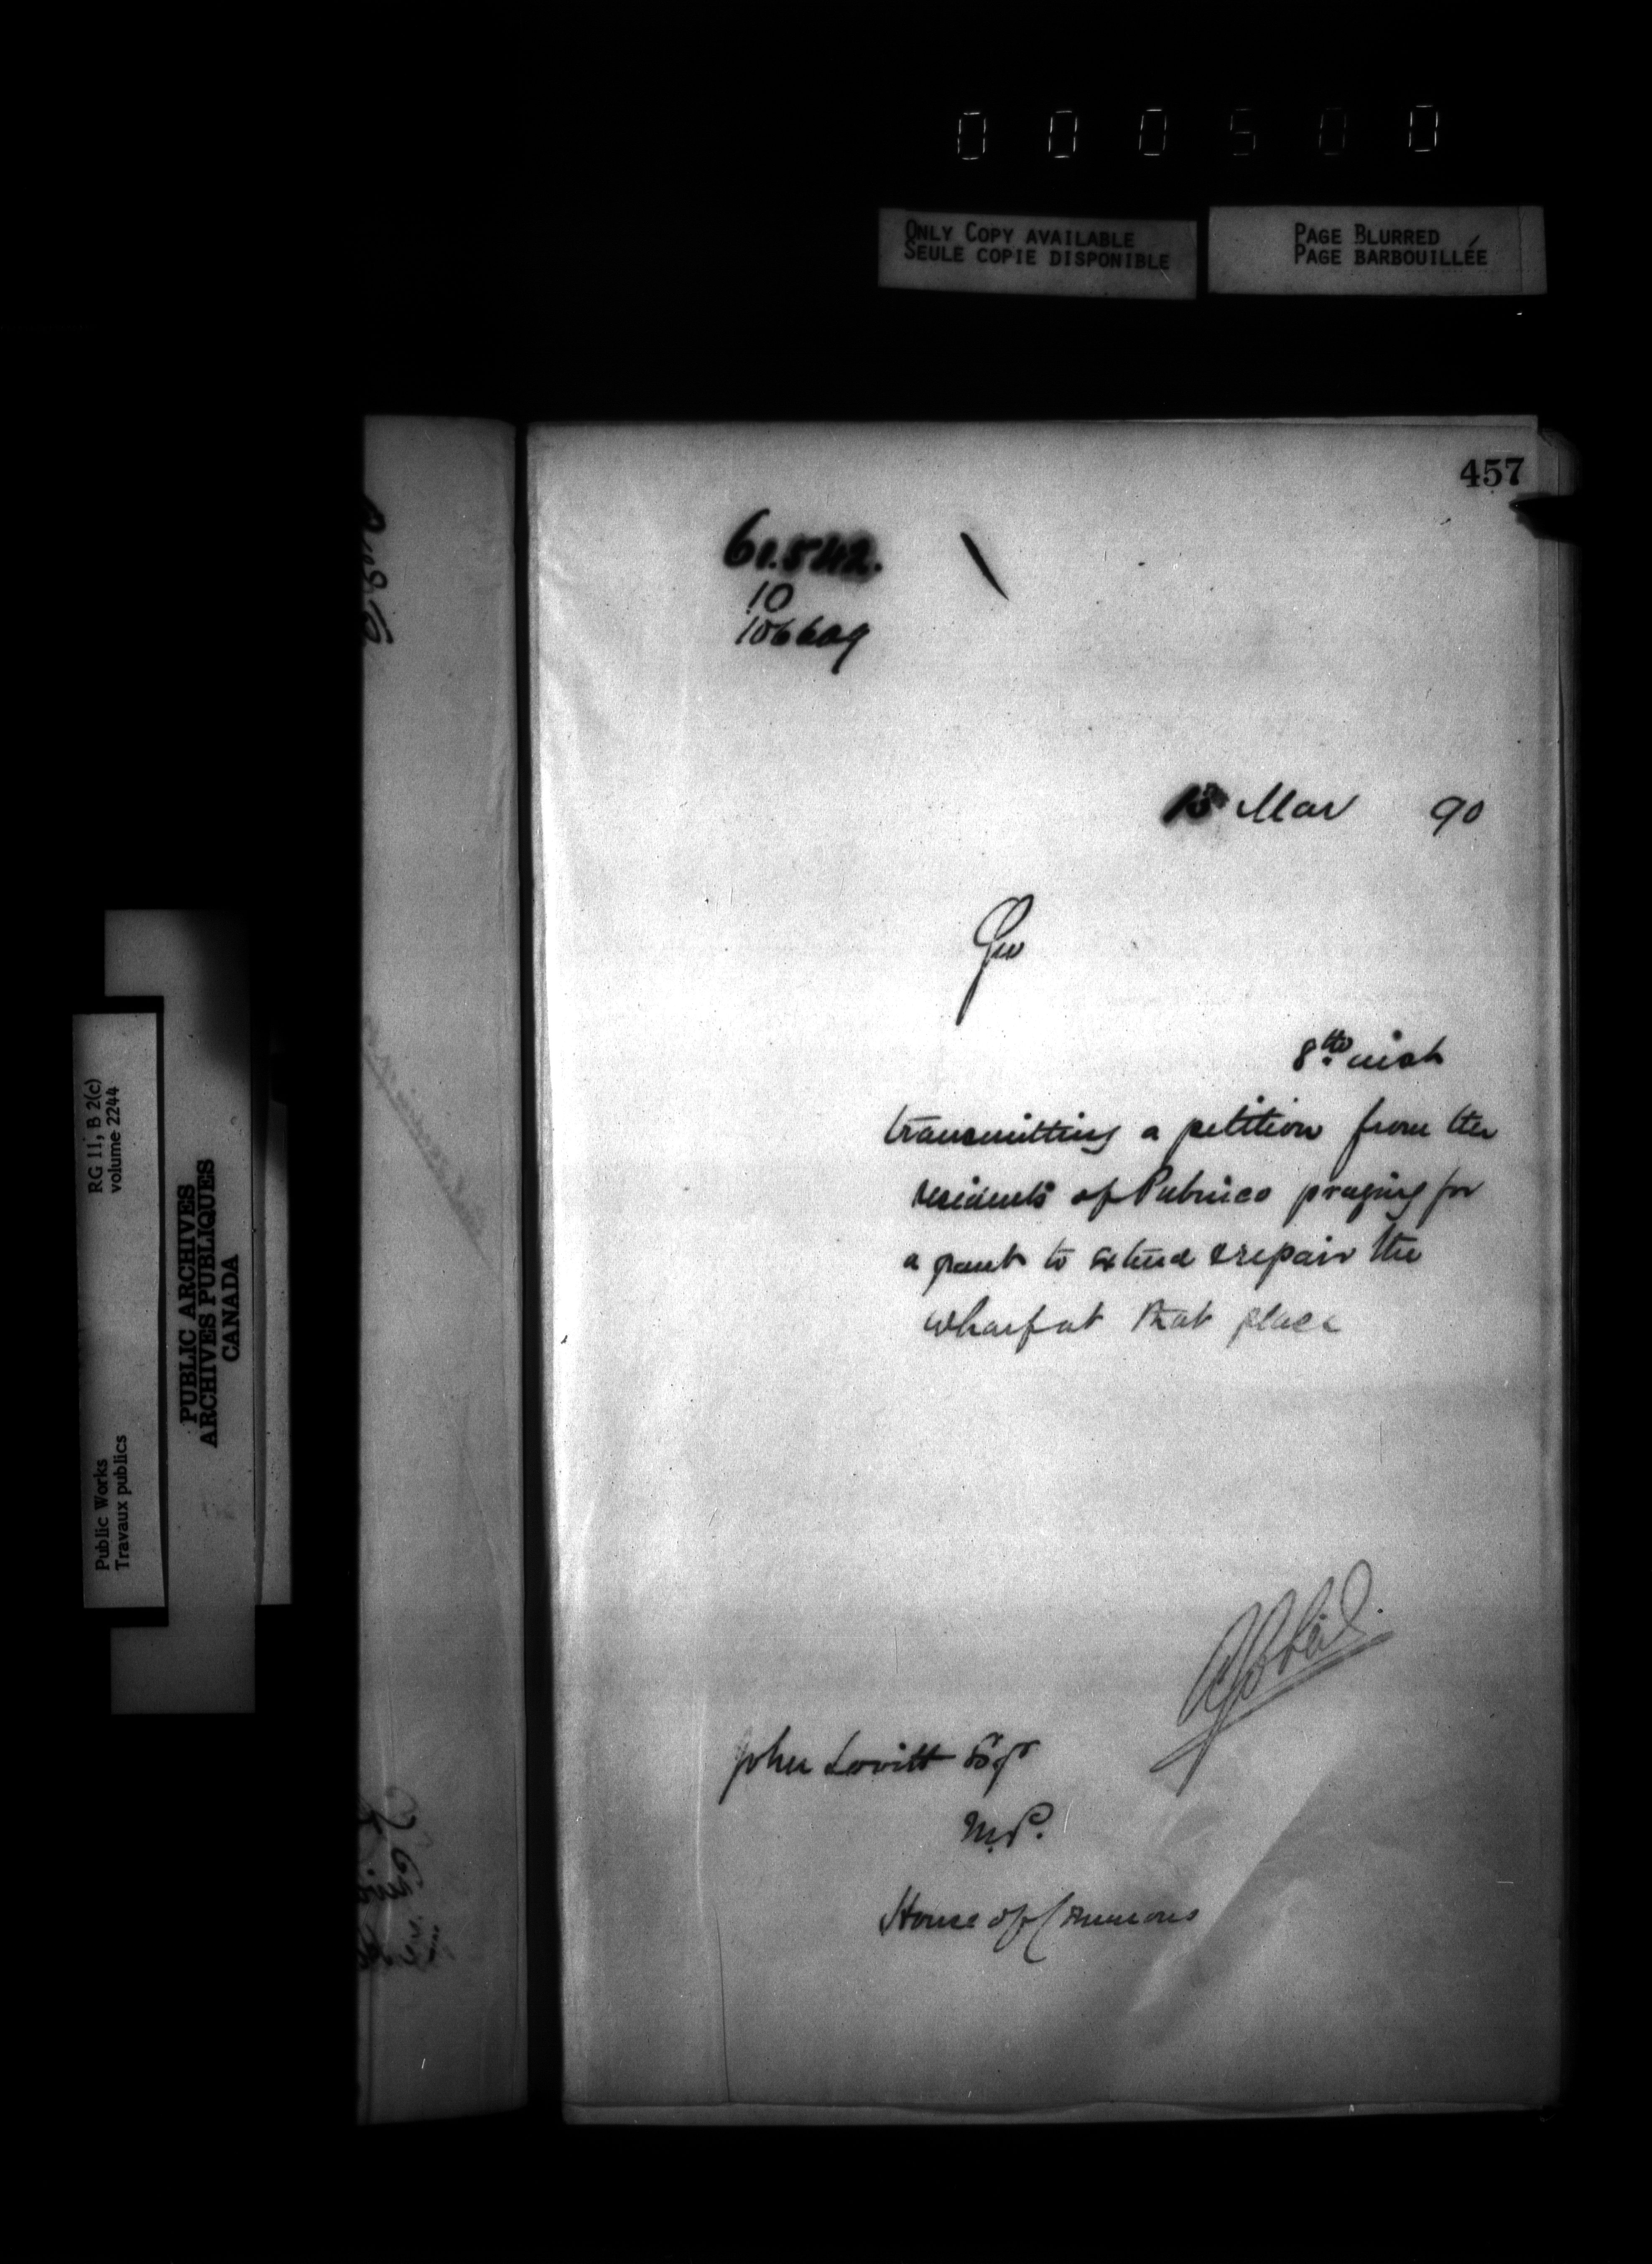 000500
ONLY COPY AVAILABLE
SEULE COPIE DISPONIBLE
PAGE BLURRED
PAGE BARBOUILLÉE
457
61.542.
10
106609
Mar 90
8th inst
transmitting a petition from the
residents of Pubnico praying for
a grant to extend & repair the
wharf at that place
John Lovitt Esqr
M.P.
House of Commons
RG 11, B 2(c)
volume 2244
Public Works
Travaux publics
PUBLIC ARCHIVES
ARCHIVES PUBLIQUES
CANADA